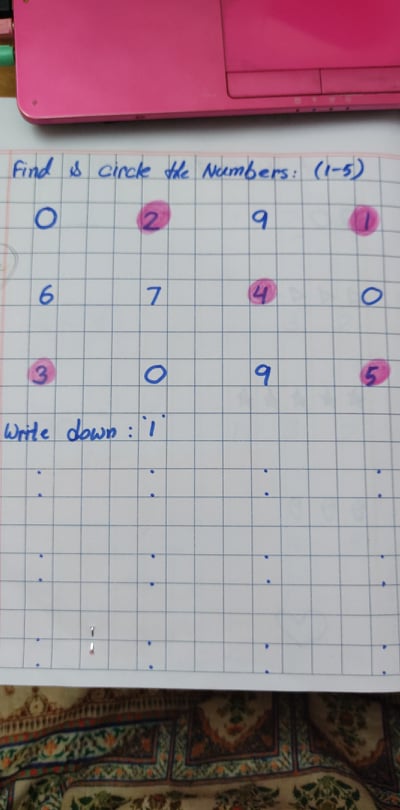 Find & circle the Numbers: (1-5)
0 2 9 1
6 7 4 0
3 0 9 5
Write down : '1'